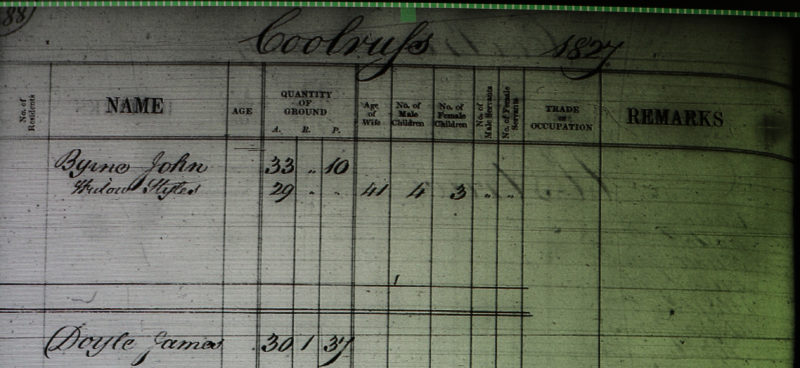 88
Coolruss 1827
No. of Residents NAME AGE QUANTITY OF GROUND A. R. P. Age of Wife No. of Male Children No. of Female Children No. of Male Servants No. of Female Servants TRADE OR OCCUPATION REMARKS
Byrne John 33 „ 10
Widow Styles 29 „ „ 41 4 3 „ „
Doyle James 30 1 37